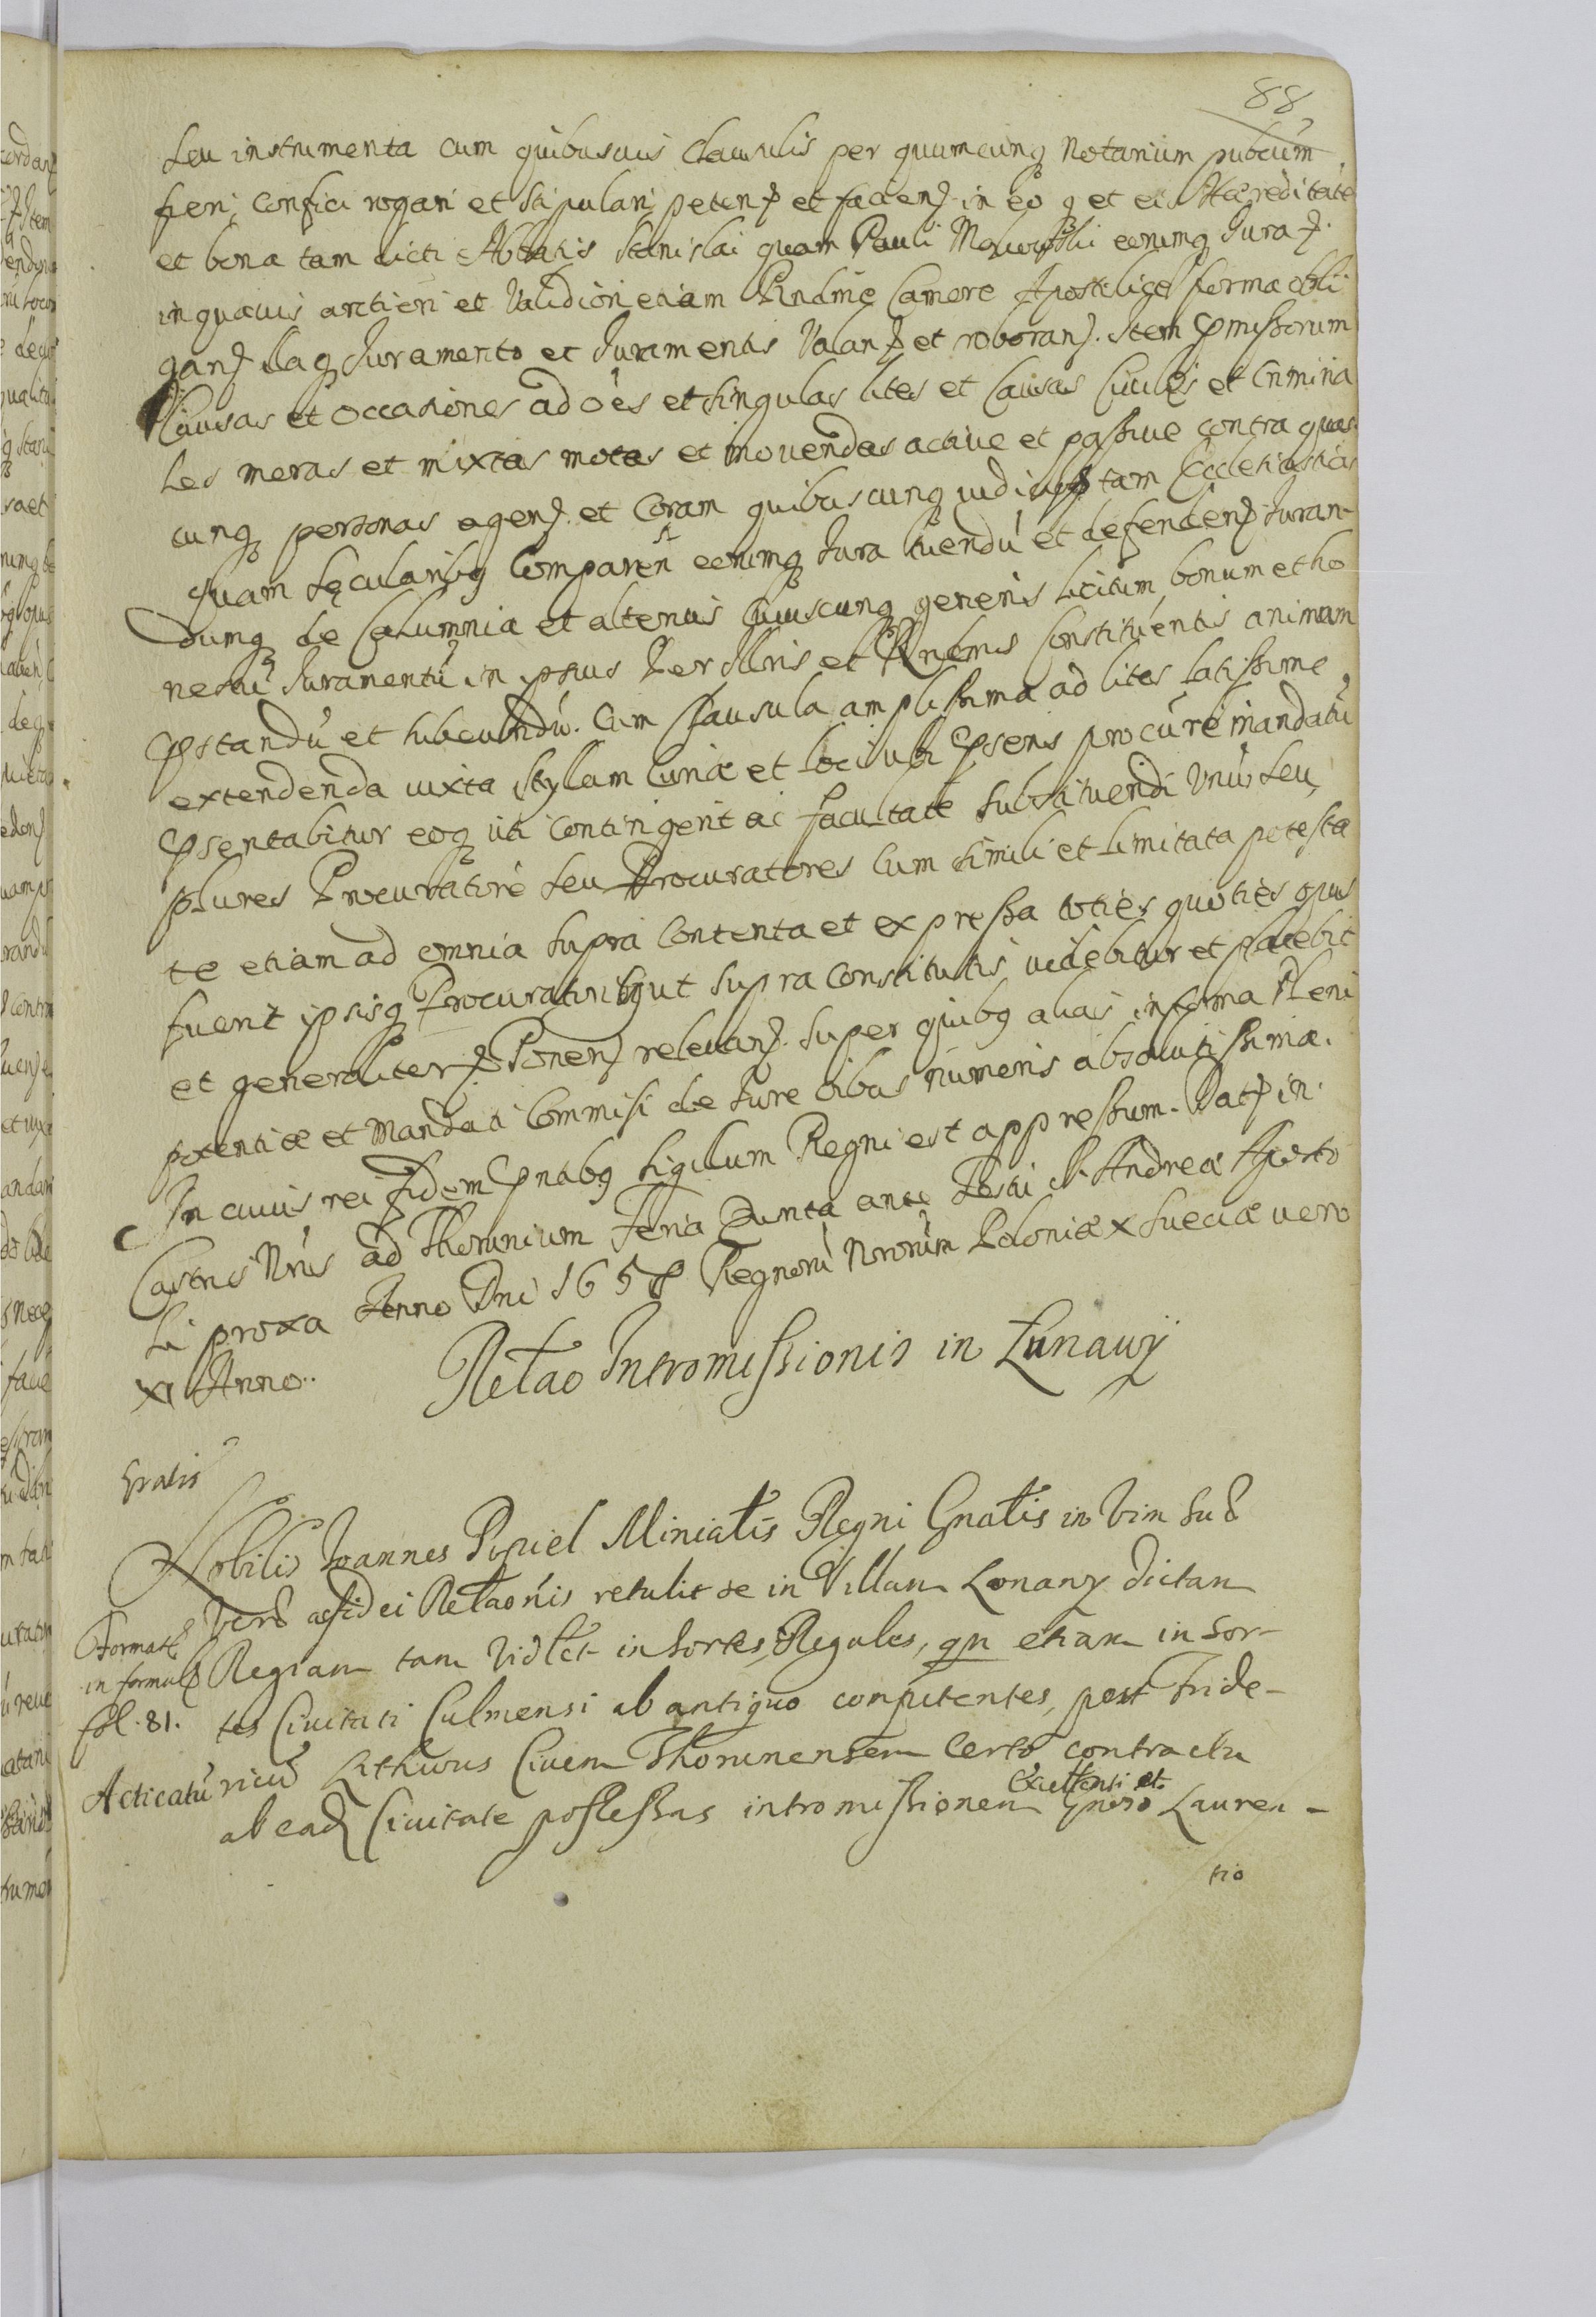 88
seu instrumenta cum quibusuis clausulis per quumcunq Notarium pubcum
fieri, confici rogari et stipulari petend et faciend in eo q et eis Hæreditate
et bona tam dicti Abbatis Stanislai quam Pauli eorumq Jura
inquauis arctiori et Validiori etiam Camere Apostolice forma obli
gand Juramento et Juramentis Valand et roborand. Item pmissorum
Causas et occasiones ad oes et singulas lites et Causas Ciuiles et Crimina
les meras et mixtas motas et mouendas actiue et passiue contra quas
cunq personas agend. et Coram quibuscunq tam Ecclesiasticis
quam sęcularibq Comparen eorumq Jura tuendu et defendend Juran-
dumq de Calumnia et alterius cuiuscunq generis licitum, bonum et ho
nestu Juramentu in psius Per Illris et Rndmi Constituentis animam
pstandu et subeundu. Cum Clausula amplissima ad lites latissime
extendenda iuxta stylum Curiæ et Loci ubi psens procure mandatu
psentabitur eoq uti contingerit ac facultate substituendi Unu seu
plures Procuratore seu Procuratores cum simili et limitata potesta
te etiam ad omnia supra contenta et expressa toties quoties opus
fuerit ipsisq Procuratoribq ut supra constitutis uidebitur et placebit
et generaliter relevand. super quibq alias in forma Pleni
potentiæ et Mandati Commisi de Jure oibus numeris absolutissimæ.
In cuius rei fidem pntibq sigillum Regni est appressum. Dat in
Castris Nris ad Thorunium Feria Quinta ante Festu S. Andreæ Aposto
li proxa Anno Dni 1658 Regnoru Nrorum Poloniæ x Sueciæ uero
xi Anno.
Retao Intromissionis in Lunawÿ
gratis
Nobilis Joannes Miniatis Regni Gnatis in Vim suæ
veræ ac fidei Retaonis retulit se in Villam Lonawy dictam
Formatæ
in formul
fol. 81.
Regiam tam Vidlct in Sortes Regales, qm etiam in sor-
tes Ciuitati Culmensi ab antiquo competentes, post Fride-
Acticatu
ricu Civem Thorunensem Certo contractu
ab ead Ciuitate possessas intromissionem Excellenti et Gneroso Lauren-
tio